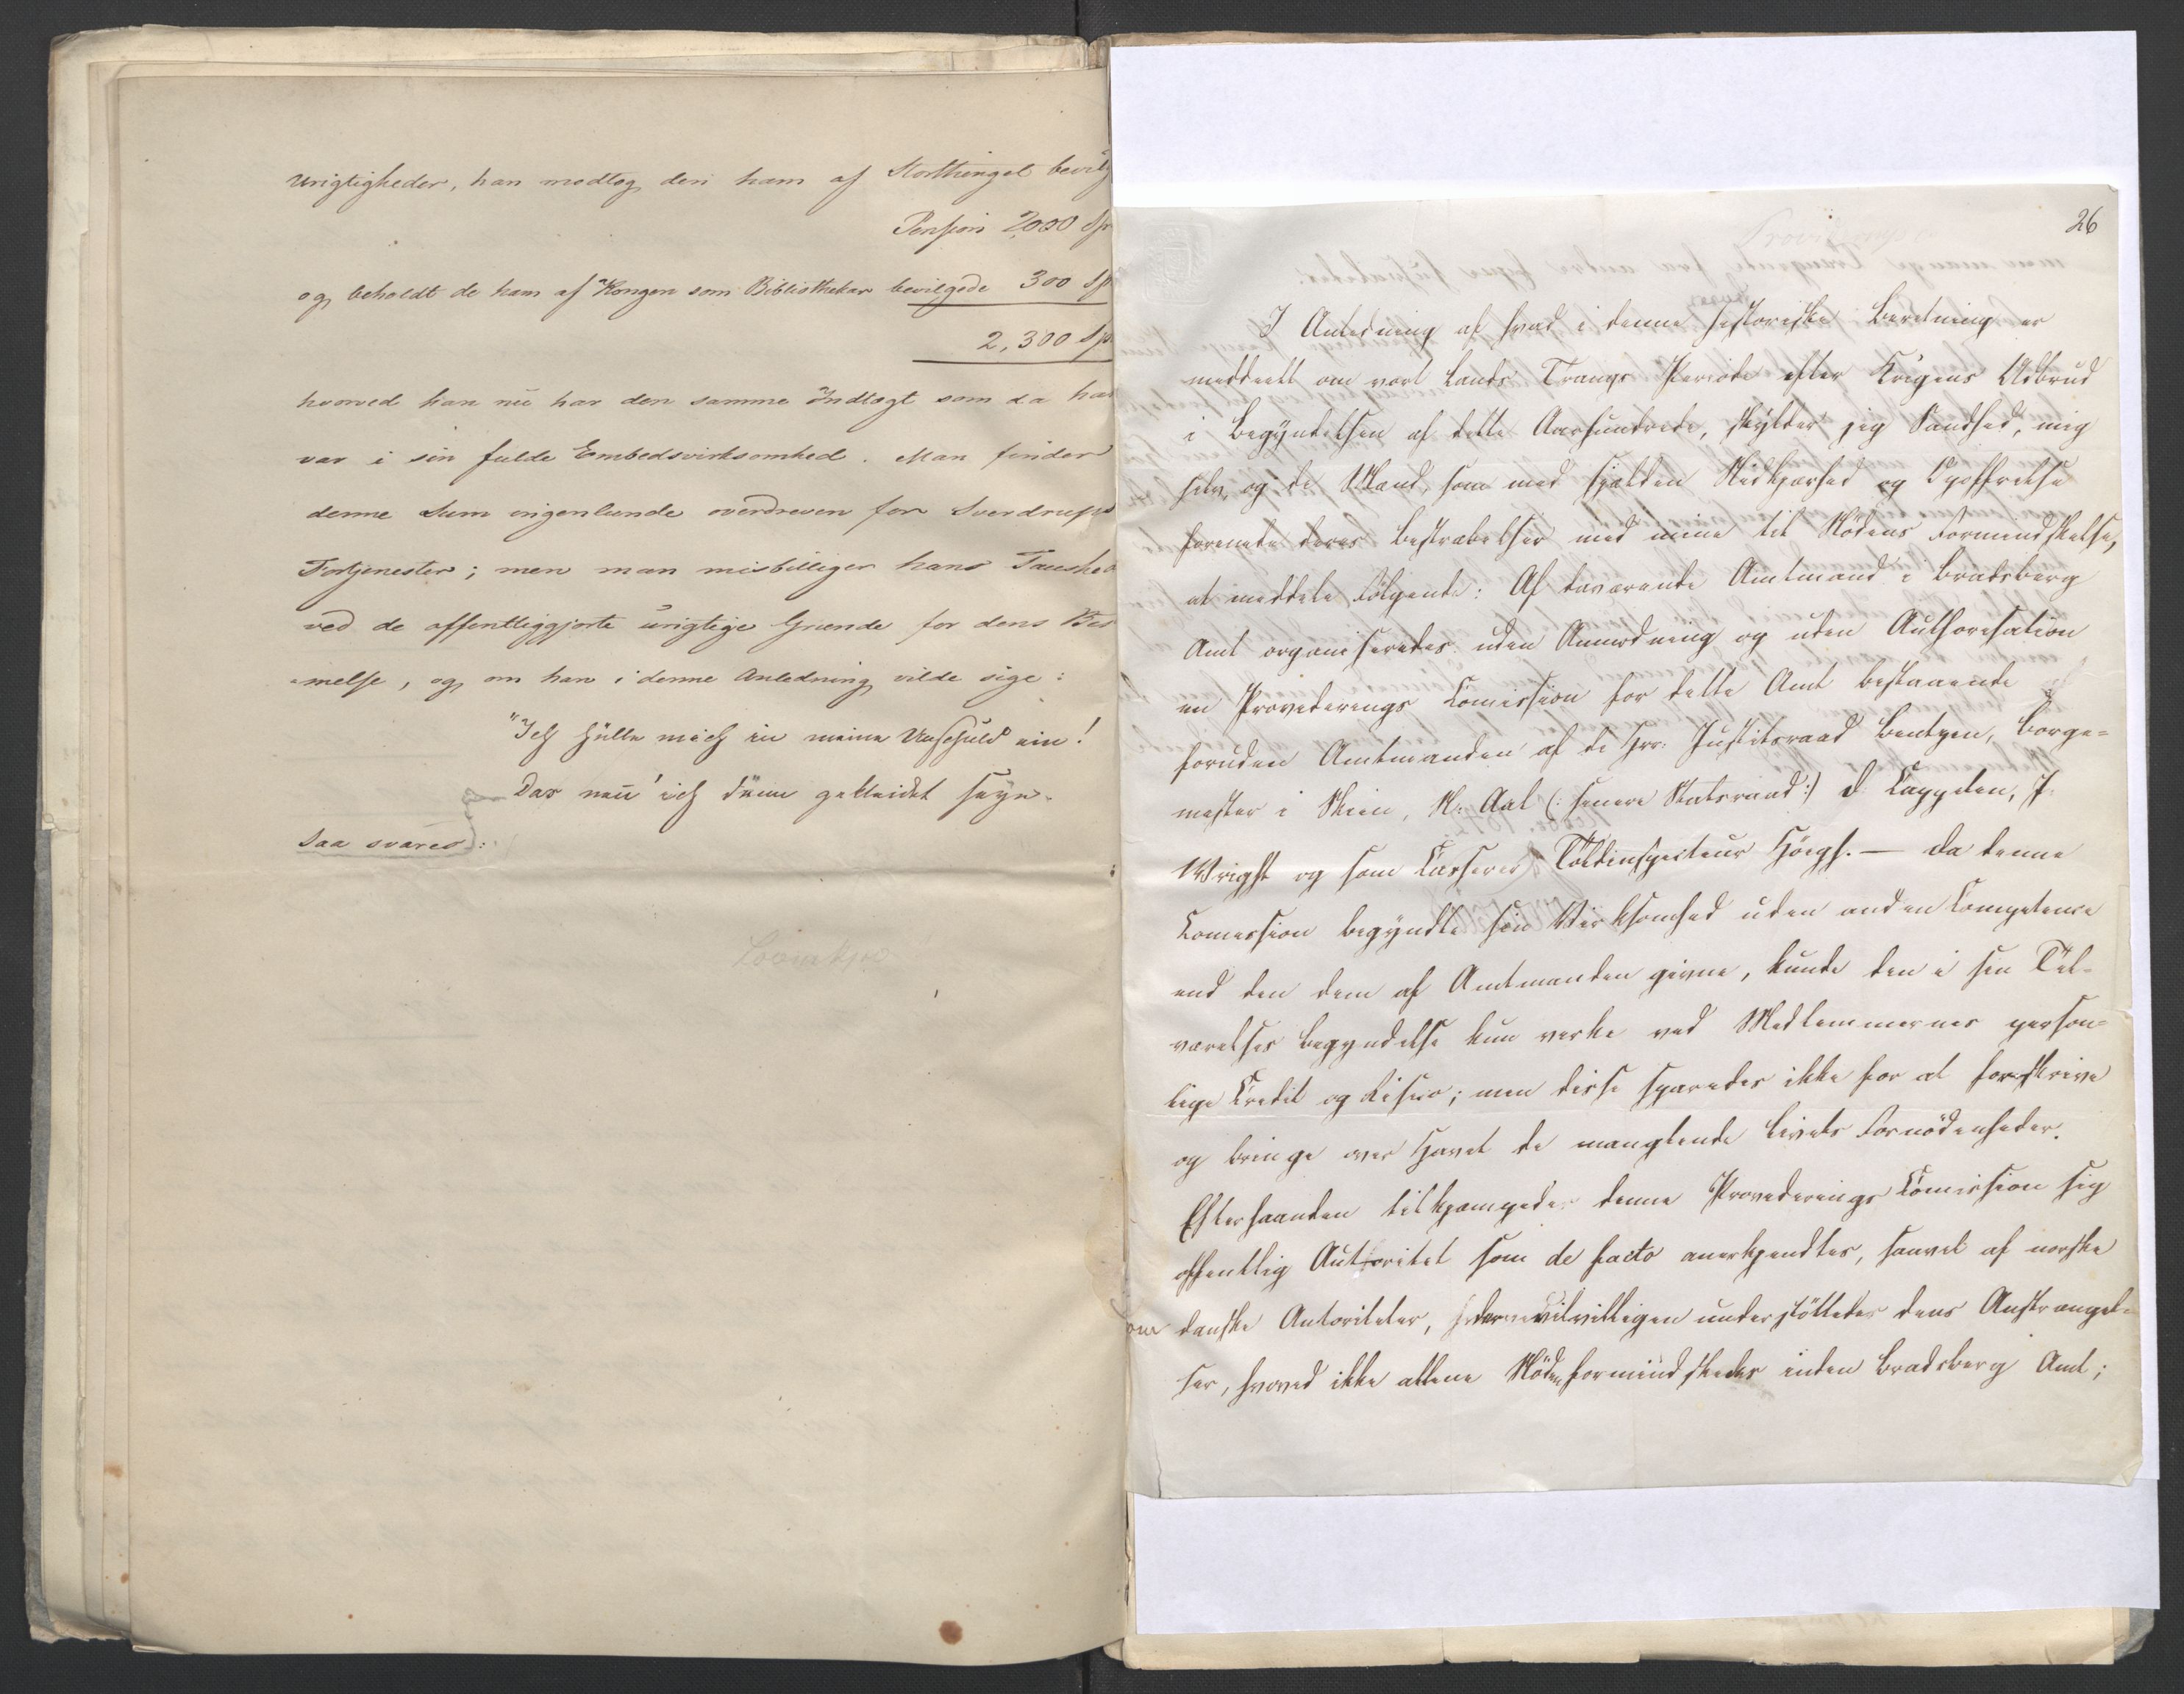 urigtigheder, han modtog den ham af Storthinget bevilg
Pension 2000 Sp
og beholdt de ham af Kongen som Bibliothekar bevilgede 300 Sp
2,300 Sp
hvorved han nu har den samme Indtægt som da han
var i sin fulde Embedsvirksomhed. Man finder
denne Sum ingenlunde overdreven for Sverdrups
Fortjenester; men man misbilliger hans Taushed
ved de offentliggjorte urigtige Grunde for dens Be
melse, og om han i denne Anledning vilde sige:
"Ich hülle mich in meine Unschuld ein!
Das nenn' ich dünn gekleidet seyn.
saa svares:
26
I Anledning af hvad i denne historiske Beretning er
meddeelt om vort Lands Trangs Periode efter Krigens Udbrud
i Begyndelsen af dette Aarhundrede, skylder jeg Sandhed, mig
selv, og de Mænd, som med sjælden Nidkjærhed og Opoffrelse
forenede deres Bestræbelser med mine til Nödens Formindskelse,
at meddele Følgende: Af daværende Amtmand i Bradsberg
Amt organiseredes uden Anmodning og uden Authorisation
en Provederings Comission for dette Amt bestaaende
foruden Amtmanden af de Hrr: Justitsraad Bentzen, Borge-
mester i Skien, N. Aal (: senere Statsraad :) D. Cappelen, J.
Wright og som Casserer Toldinspecteur Höegh. — Da denne
Comission begyndte sin Virksomhed uden anden Competence
end den dem af Amtmanden givne, kunde den i sin Til-
værelses Begyndelse kun verke ved Medlemmernes person-
lige Credit og Risico; men disse sparedes ikke for at forskrive
og bringe over Havet de manglende Livets Fornödenheder.
Efterhaanden tilkjæmpede denne Provederings Comission sig
offentlig Autoritet som de facto anerkjendtes, saavel af norske
om danske Autoriteter, velvilligen understöttedes dens Anstrængel-
ser, hvorved ikke allene Nöden formindskedes inden Bradsberg Amt;